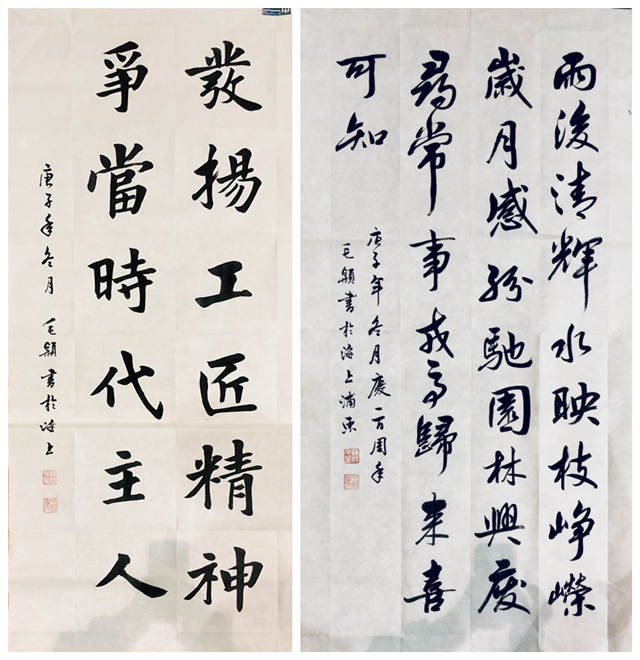 發揚工匠精神
爭當時代主人
庚子年冬月 毛穎書於海上
雨後清輝水映枝崢嶸
歲月感紛馳園林興廢
尋常事戎馬歸来喜
可知
庚子年冬月慶一百周年
毛穎書於海上浦東